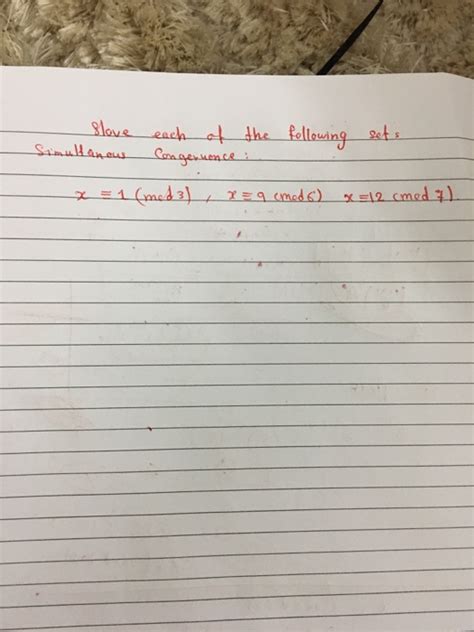 Slove each of the following sets
Simultanous Congeruence :
x ≡ 1 (mod 3) , x ≡ 9 (mod 6) x ≡ 12 (mod 7).